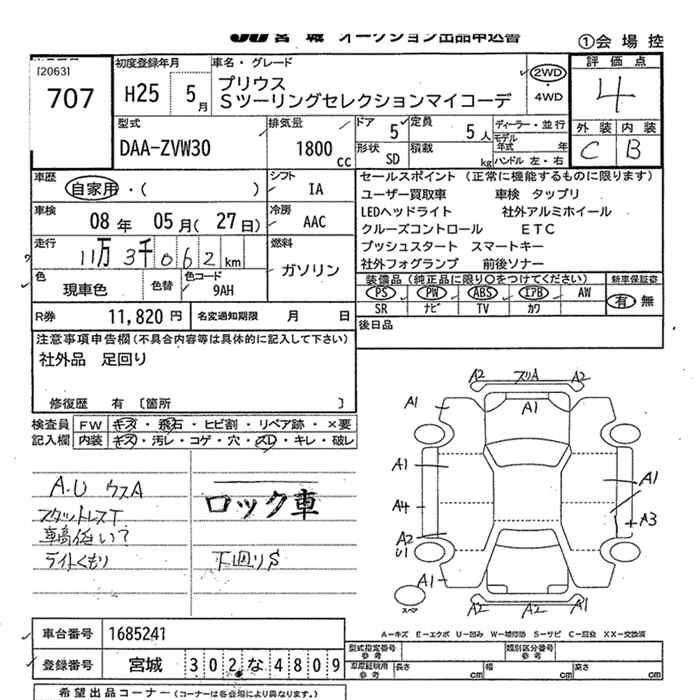 JU 宮城 オークション出品申込書
①会場控
[2063]
707
初度登録年月
H25 5月
車名・グレード
プリウス
Sツーリングセレクションマイコーデ
2WD
・
4WD
評価点
4
外装 内装
C B
型式
DAA-ZVW30
排気量
1800 cc
ドア 5
定員 5人
形状 SD
積載 kg
ディーラー・並行
モデル年式 年
ハンドル 左・右
車歴
自家用・( )
シフト
IA
車検
08年 05月(27日)
冷房
AAC
走行
11万3千062km
燃料
ガソリン
色
現車色
色替
色コード
9AH
R券 11,820円
名変通知期限 月 日
セールスポイント (正常に機能するものに限ります)
ユーザー買取車 車検 タップリ
LEDヘッドライト 社外アルミホイール
クルーズコントロール ETC
プッシュスタート スマートキー
社外フォグランプ 前後ソナー
装備品(純正品に限り○をつけてください)
新車保証書
PS PW ABS エアB AW
有 無
SR ナビ TV カワ
後日品
注意事項申告欄(不具合内容等は具体的に記入して下さい)
社外品 足回り
修復歴 有 〔箇所 〕
検査員記入欄
FW キズ・飛石・ヒビ割・リペア跡・×要
内装 キズ・汚レ・コゲ・穴・スレ・キレ・破レ
A・U ウスA
スタットレスT
車高低い?
ライトくもり
ロック車
下廻りS
A2 スリA A2
A1 A1
A1 A1
A4 A3
A2
U1
A1
スペア
A2 A2 A2
A-キズ E-エクボ U-凹み W-補修跡 S-サビ C-腐食 XX-交換済
車台番号 1685241
登録番号 宮城 302な4809
型式指定番号 参考
類別区分番号 参考
車庫証明用 参考
長さ cm 幅 cm 高さ cm
希望出品コーナー(コーナーは各会場により異なります。)